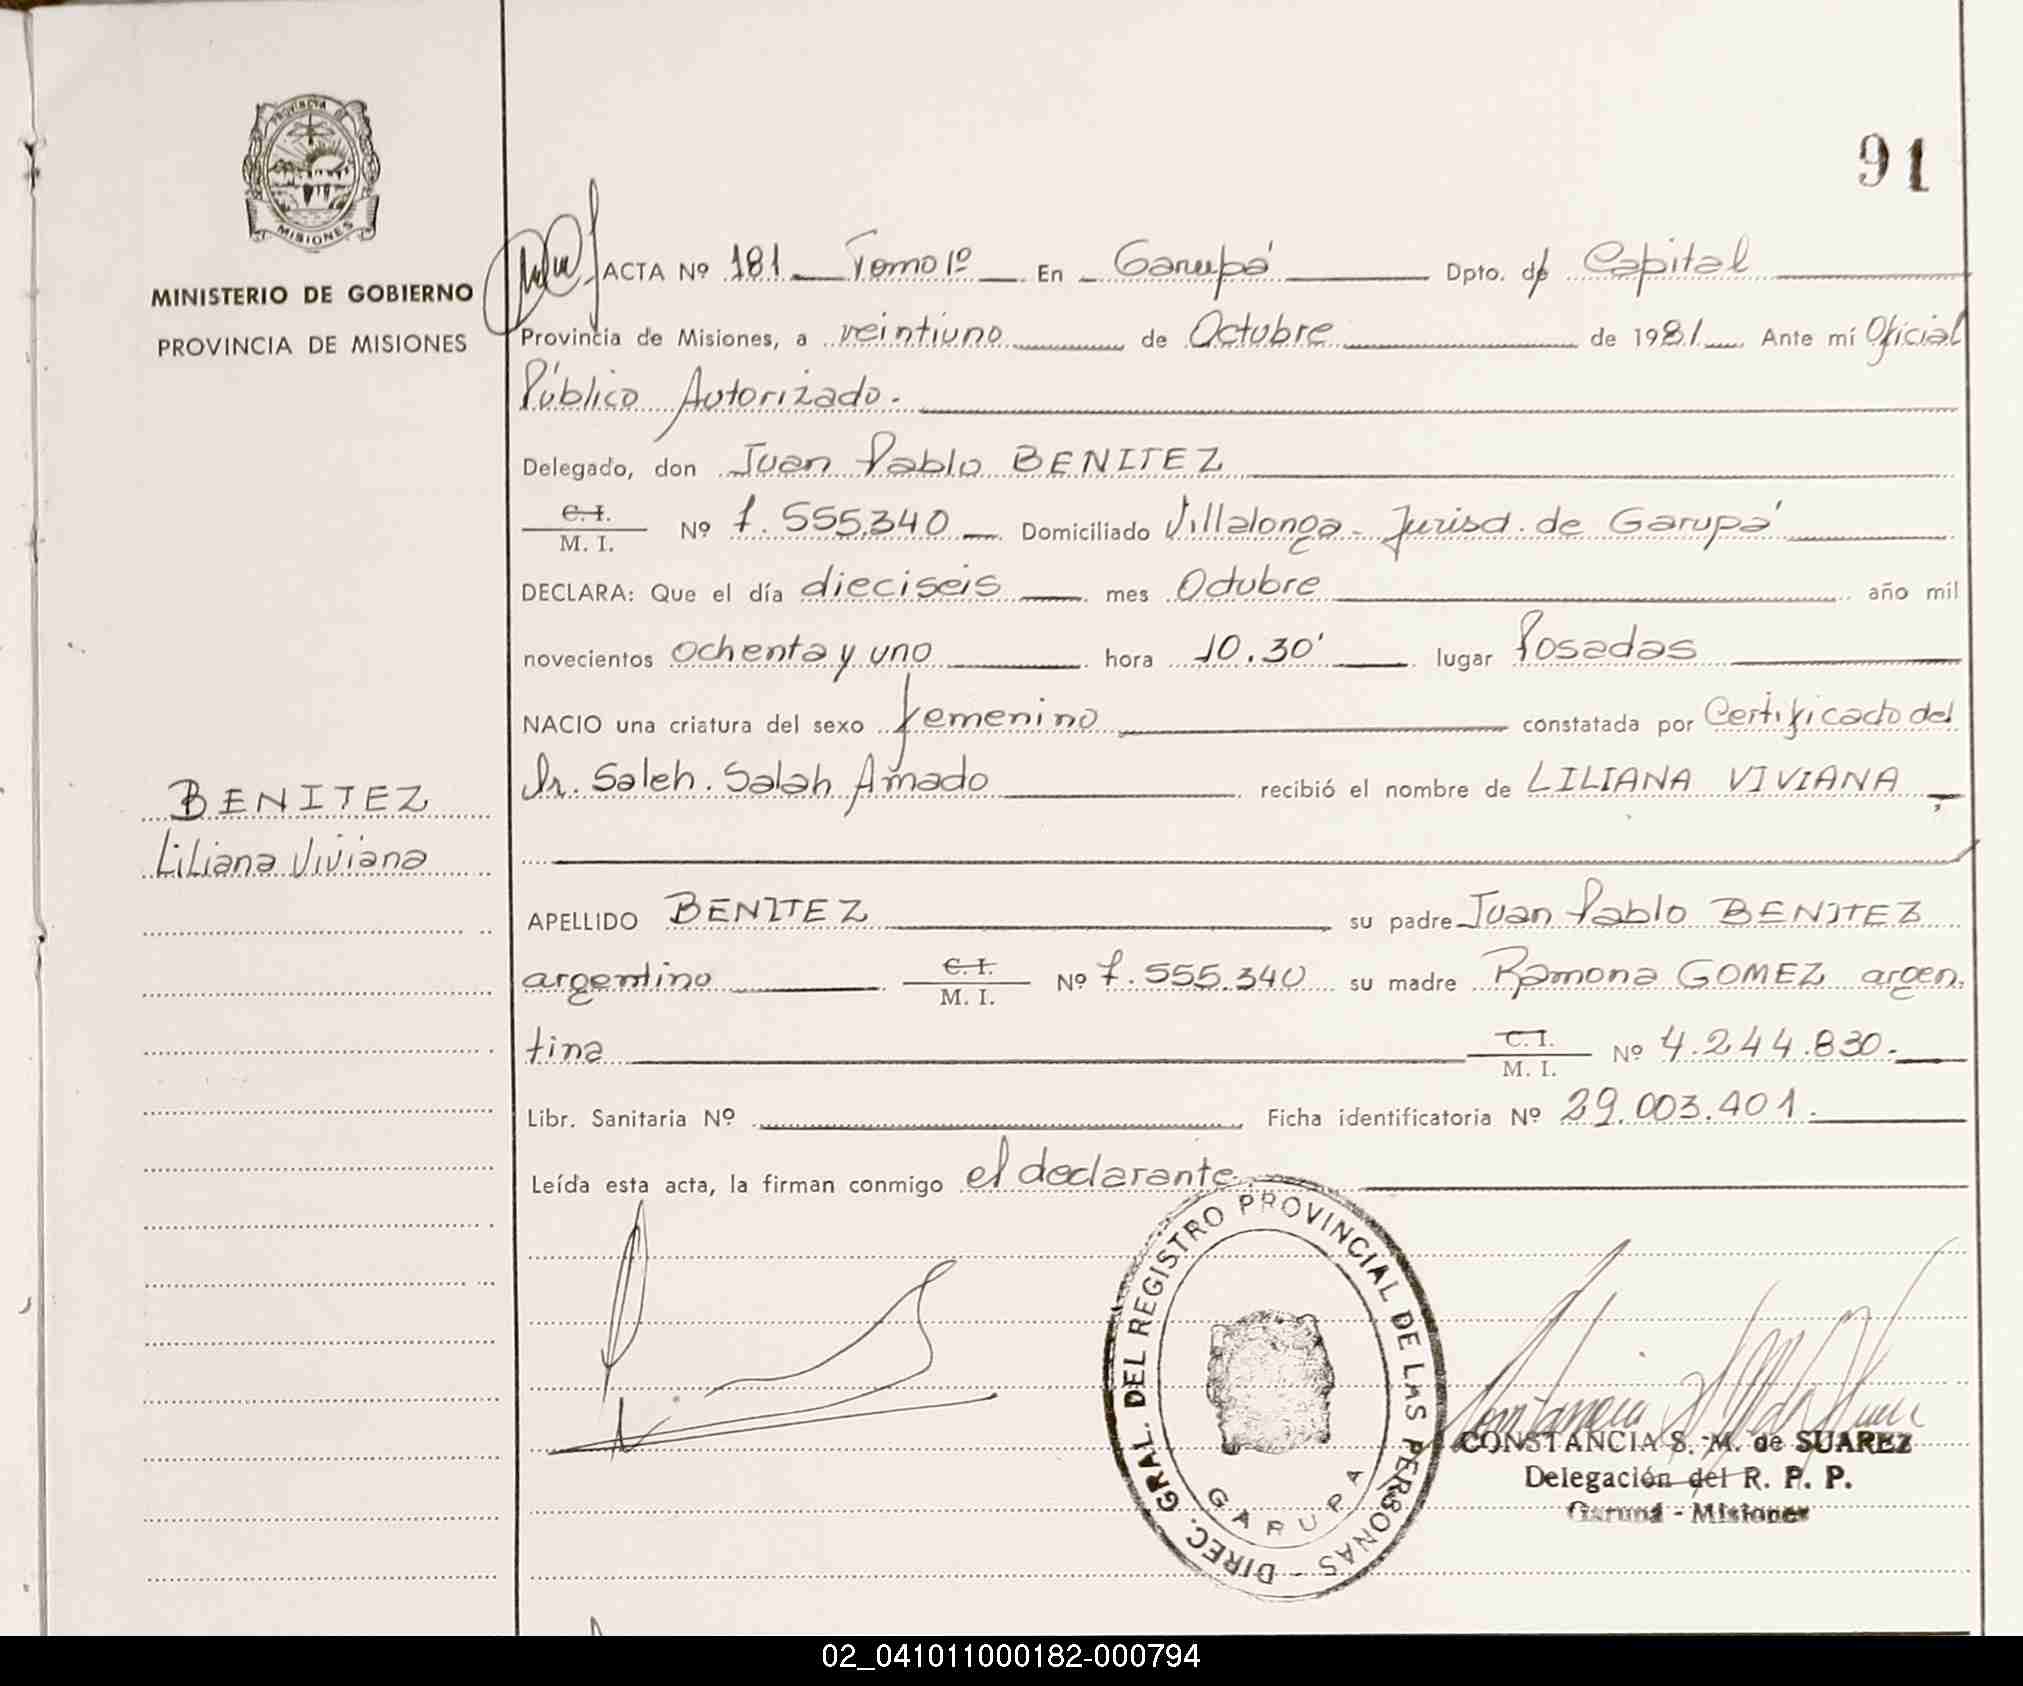 PROVINCIA DE
MISIONES
MINISTERIO DE GOBIERNO
PROVINCIA DE MISIONES
BENITEZ
Liliana Viviana
91
ACTA Nº 181 Tomo 1º En Garupá Dpto. de Capital
Provincia de Misiones, a veintiuno de Octubre de 1981 Ante mí Oficial
Público Autorizado.
Delegado, don Juan Pablo BENITEZ
C. I.
M. I. Nº 7.555.340 Domiciliado Villalonga - Jurisd. de Garupá
DECLARA: Que el día dieciseis mes Octubre año mil
novecientos ochenta y uno hora 10.30' lugar Posadas
NACIO una criatura del sexo femenino constatada por Certificado del
Dr. Saleh. Salah Amado recibió el nombre de LILIANA VIVIANA
APELLIDO BENITEZ su padre Juan Pablo BENITEZ
argentino C. I. M. I. Nº 7.555.340 su madre Ramona GOMEZ argen
tina C. I. M. I. Nº 4.244.830.
Libr. Sanitaria Nº Ficha identificatoria Nº 29.003.401.
Leída esta acta, la firman conmigo el declarante.
DIREC. GRAL. DEL REGISTRO PROVINCIAL DE LAS PERSONAS -
GARUPA
CONSTANCIA S. M. de SUAREZ
Delegación del R. P. P.
Garupá - Misiones
02_041011000182-000794